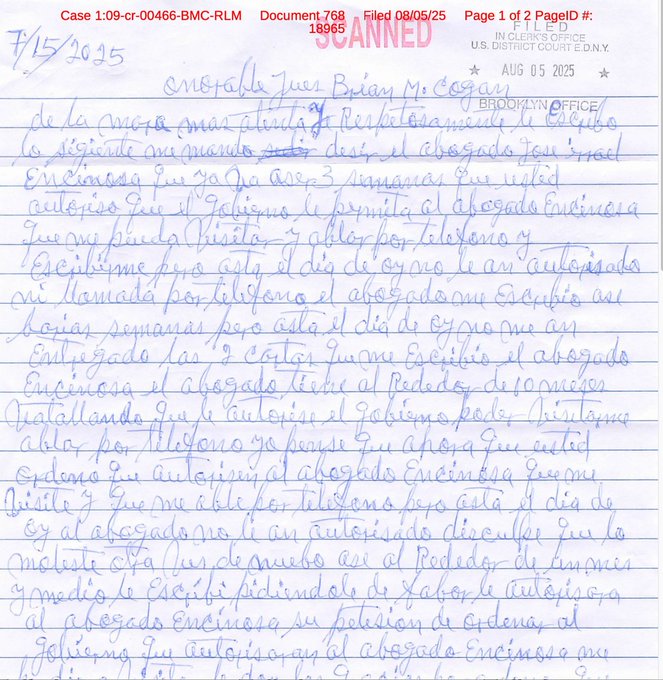 Case 1:09-cr-00466-BMC-RLM Document 768 Filed 08/05/25 Page 1 of 2 PageID #:
18965
SCANNED
FILED
IN CLERK'S OFFICE
U.S. DISTRICT COURT E.D.N.Y.
★ AUG 05 2025 ★
BROOKLYN OFFICE
7/15/2025
onorable Jues Brian M. Cogan
de la mara mas atenta y Respetosamente le Escribo
lo sigiente me mando desir el abogado Jose
Encinosa que ya va aser 3 semanas que usted
autoriso que el gobierno le permita al abogado Encinosa
que me pueda Visitar y ablar por telefono y
Escribirme pero asta el dia de oy no le an autorisado
ni llamada por telefono el abogado me Escribio ase
barias semanas pero asta el dia de oy no me an
Entregado las 2 cartas que me Escribio el abogado
Encinosa el abogado tiene al Rededor de 10 meses
batallando que le autorise el gobierno poder Visitarme
ablar por telefono yo pense que ahora que usted
ordeno que autorisen al abogado Encinosa que me
Visite y que me able por telefono pero asta el dia de
oy al abogado no le an autorisado disculpe que lo
moleste otra Ves de nuebo ase al Rededor de un mes
y medio le Escribi pidiendole de fabor le autorisara
al abogado Encinosa su petision de ordenar al
gobierno que autorisaran al abogado Encinosa me